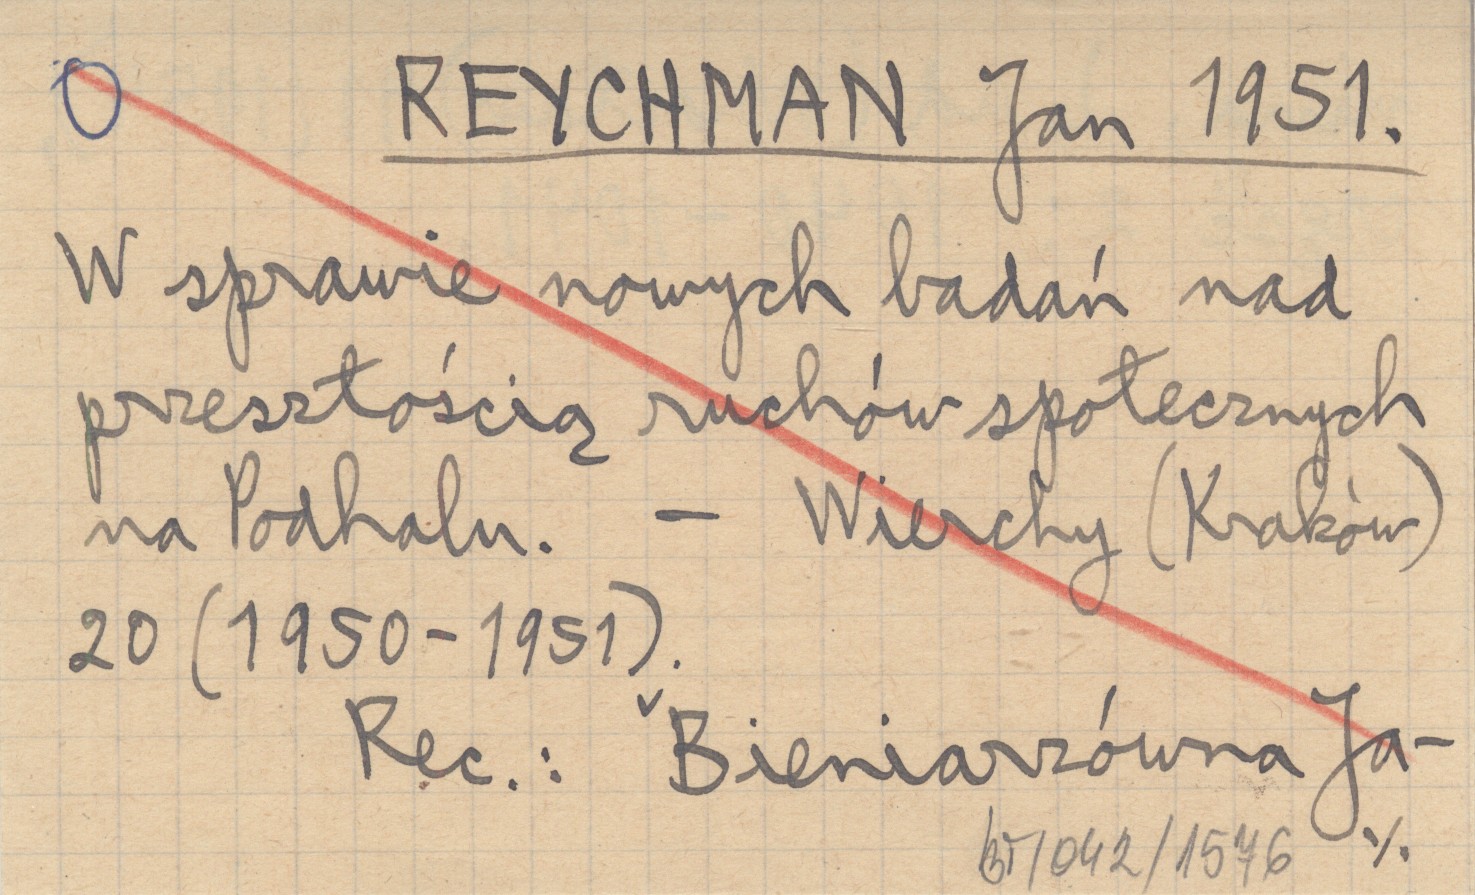 REYCHMAN Jan 1951.
W sprawie nowych badań nad
przeszłością ruchów społecznych
na Podhalu. – Wierchy (Kraków)
20 (1950-1951).
Rec.: Bieniarzówna Ja-
/042/1576 ./.